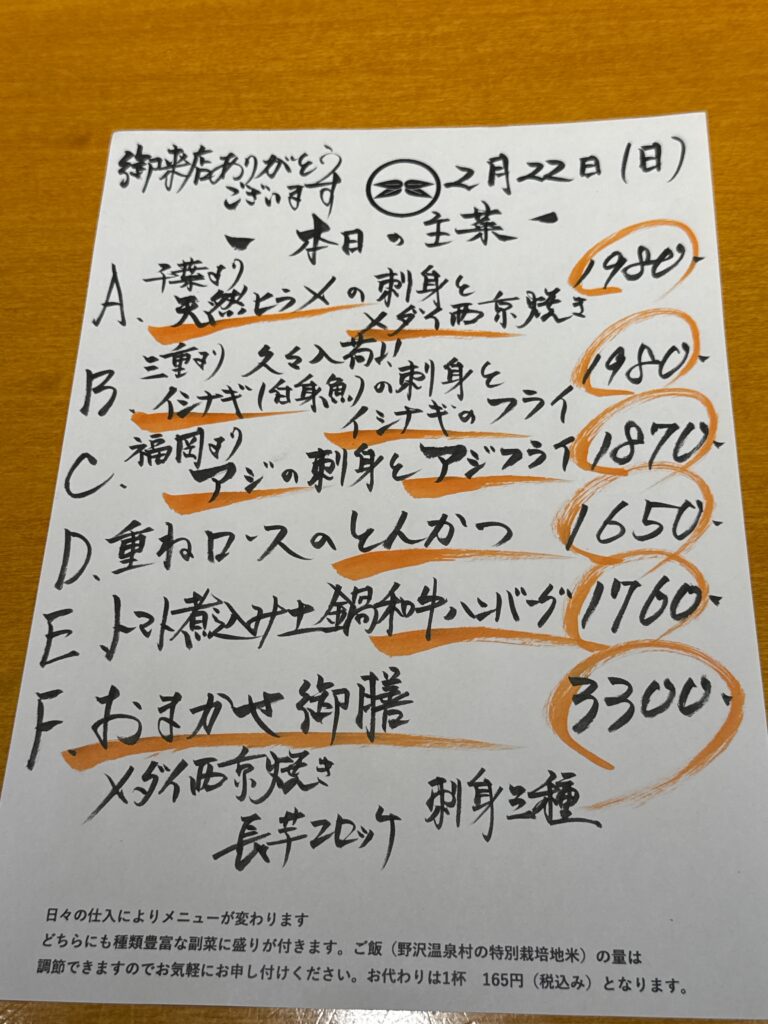 御来店ありがとう
ございます
2月22日(日)
- 本日の主菜 -
A. 千葉より
天然ヒラメの刺身と
メダイ西京焼き
1980-
B. 三重より 久々入荷!!
イシナギ(白身魚)の刺身と
イシナギのフライ
1980-
C. 福岡より
アジの刺身とアジフライ
1870-
D. 重ねロースのとんかつ 1650-
E トマト煮込み土鍋和牛ハンバーグ 1760-
F. おまかせ御膳 3300-
メダイ西京焼き
長芋コロッケ 刺身三種
日々の仕入によりメニューが変わります
どちらにも種類豊富な副菜に盛りが付きます。ご飯(野沢温泉村の特別栽培地米)の量は
調節できますのでお気軽にお申し付けください。お代わりは1杯 165円(税込み)となります。